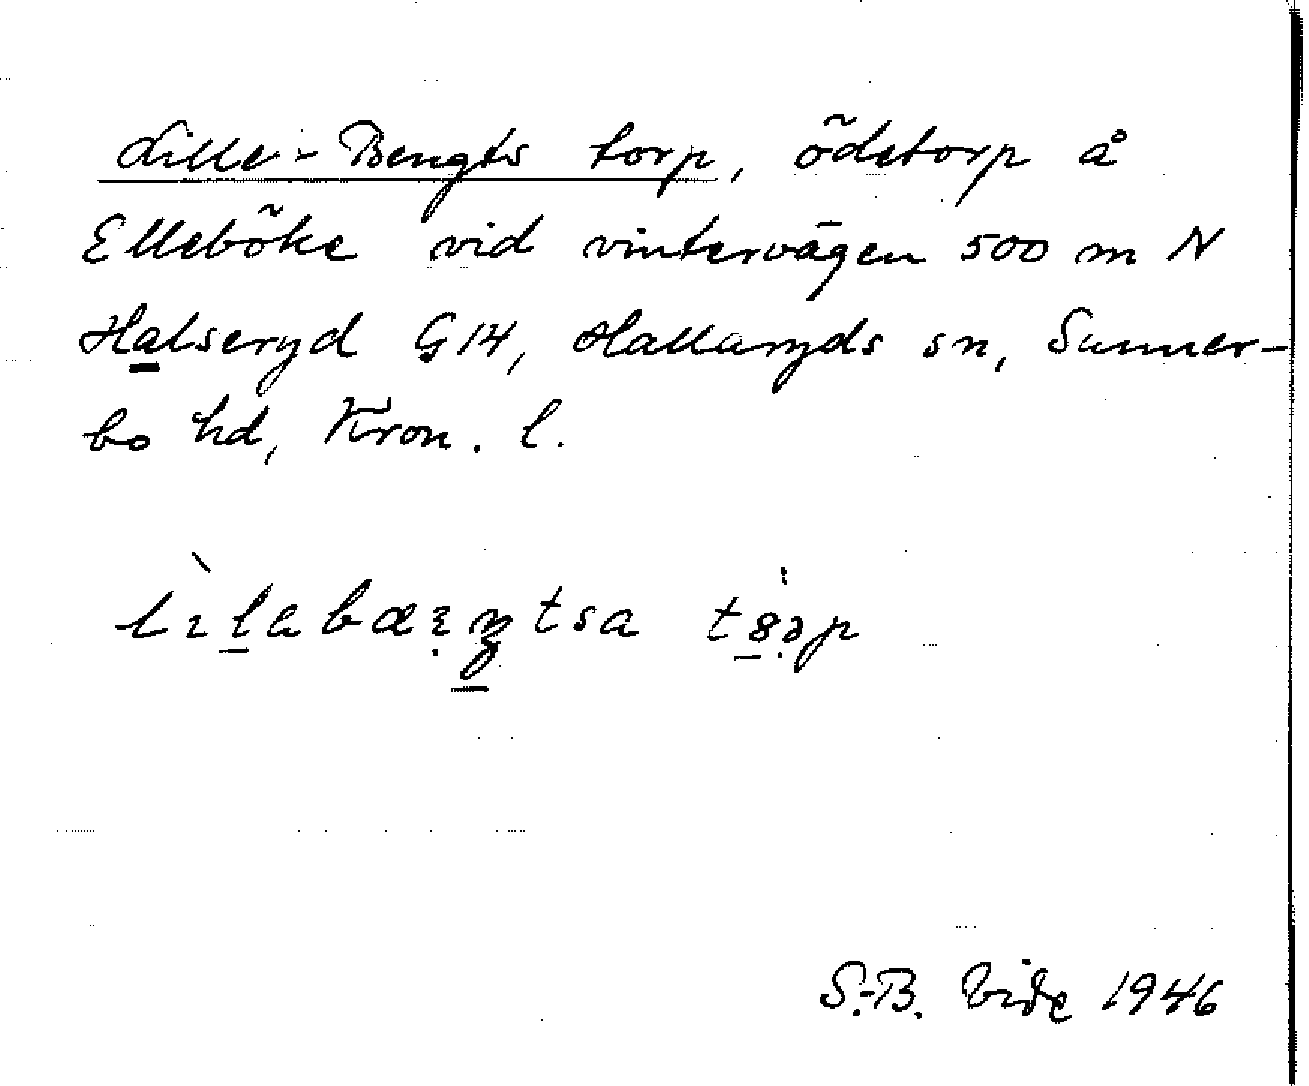 Lille-Bengts torp, ödetorp å
Elleböke vid vintervägen 500 m N
Halseryd G14, Hallaryds sn, Sunner-
bo hd, Kron. l.
S.-B. Vide 1946